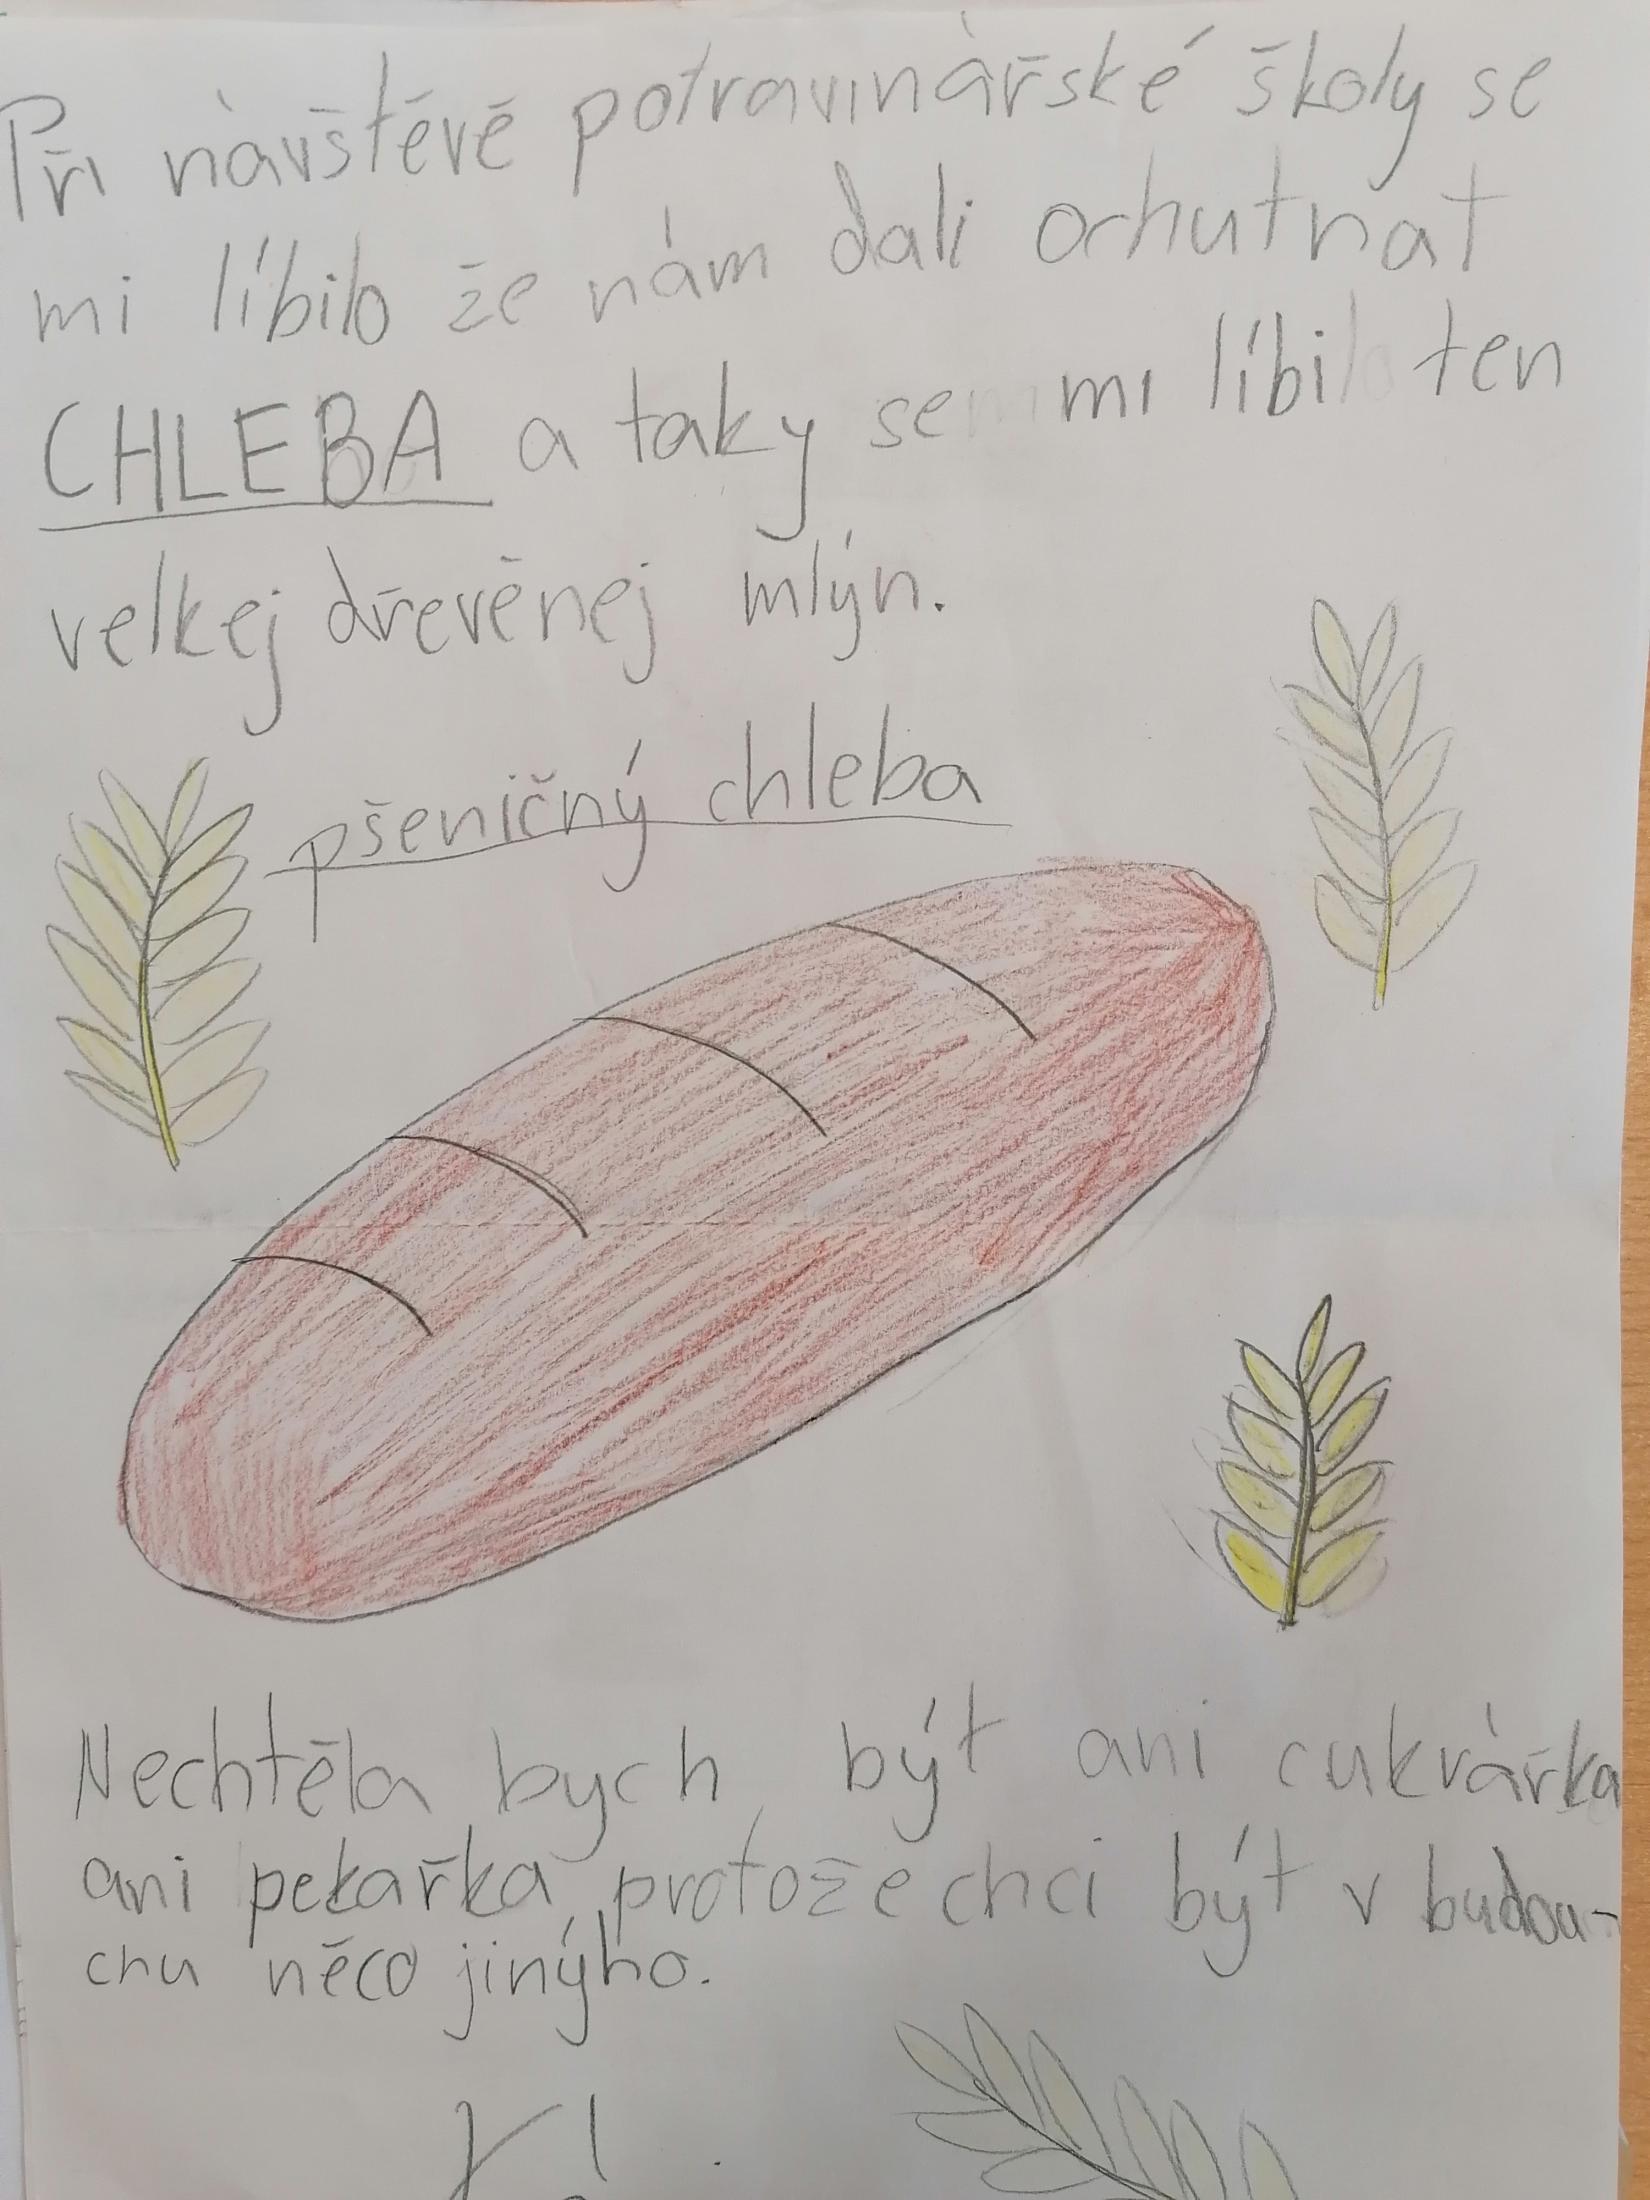 Při návštěvě potravinářské školy se
mi líbilo že nám dali ochutnat
CHLEBA a taky se mi líbil ten
velkej dřevěnej mlýn.
pšeničný chleba
Nechtěla bych být ani cukrářka
ani pekařka protože chci být v budou-
cnu něco jinýho.